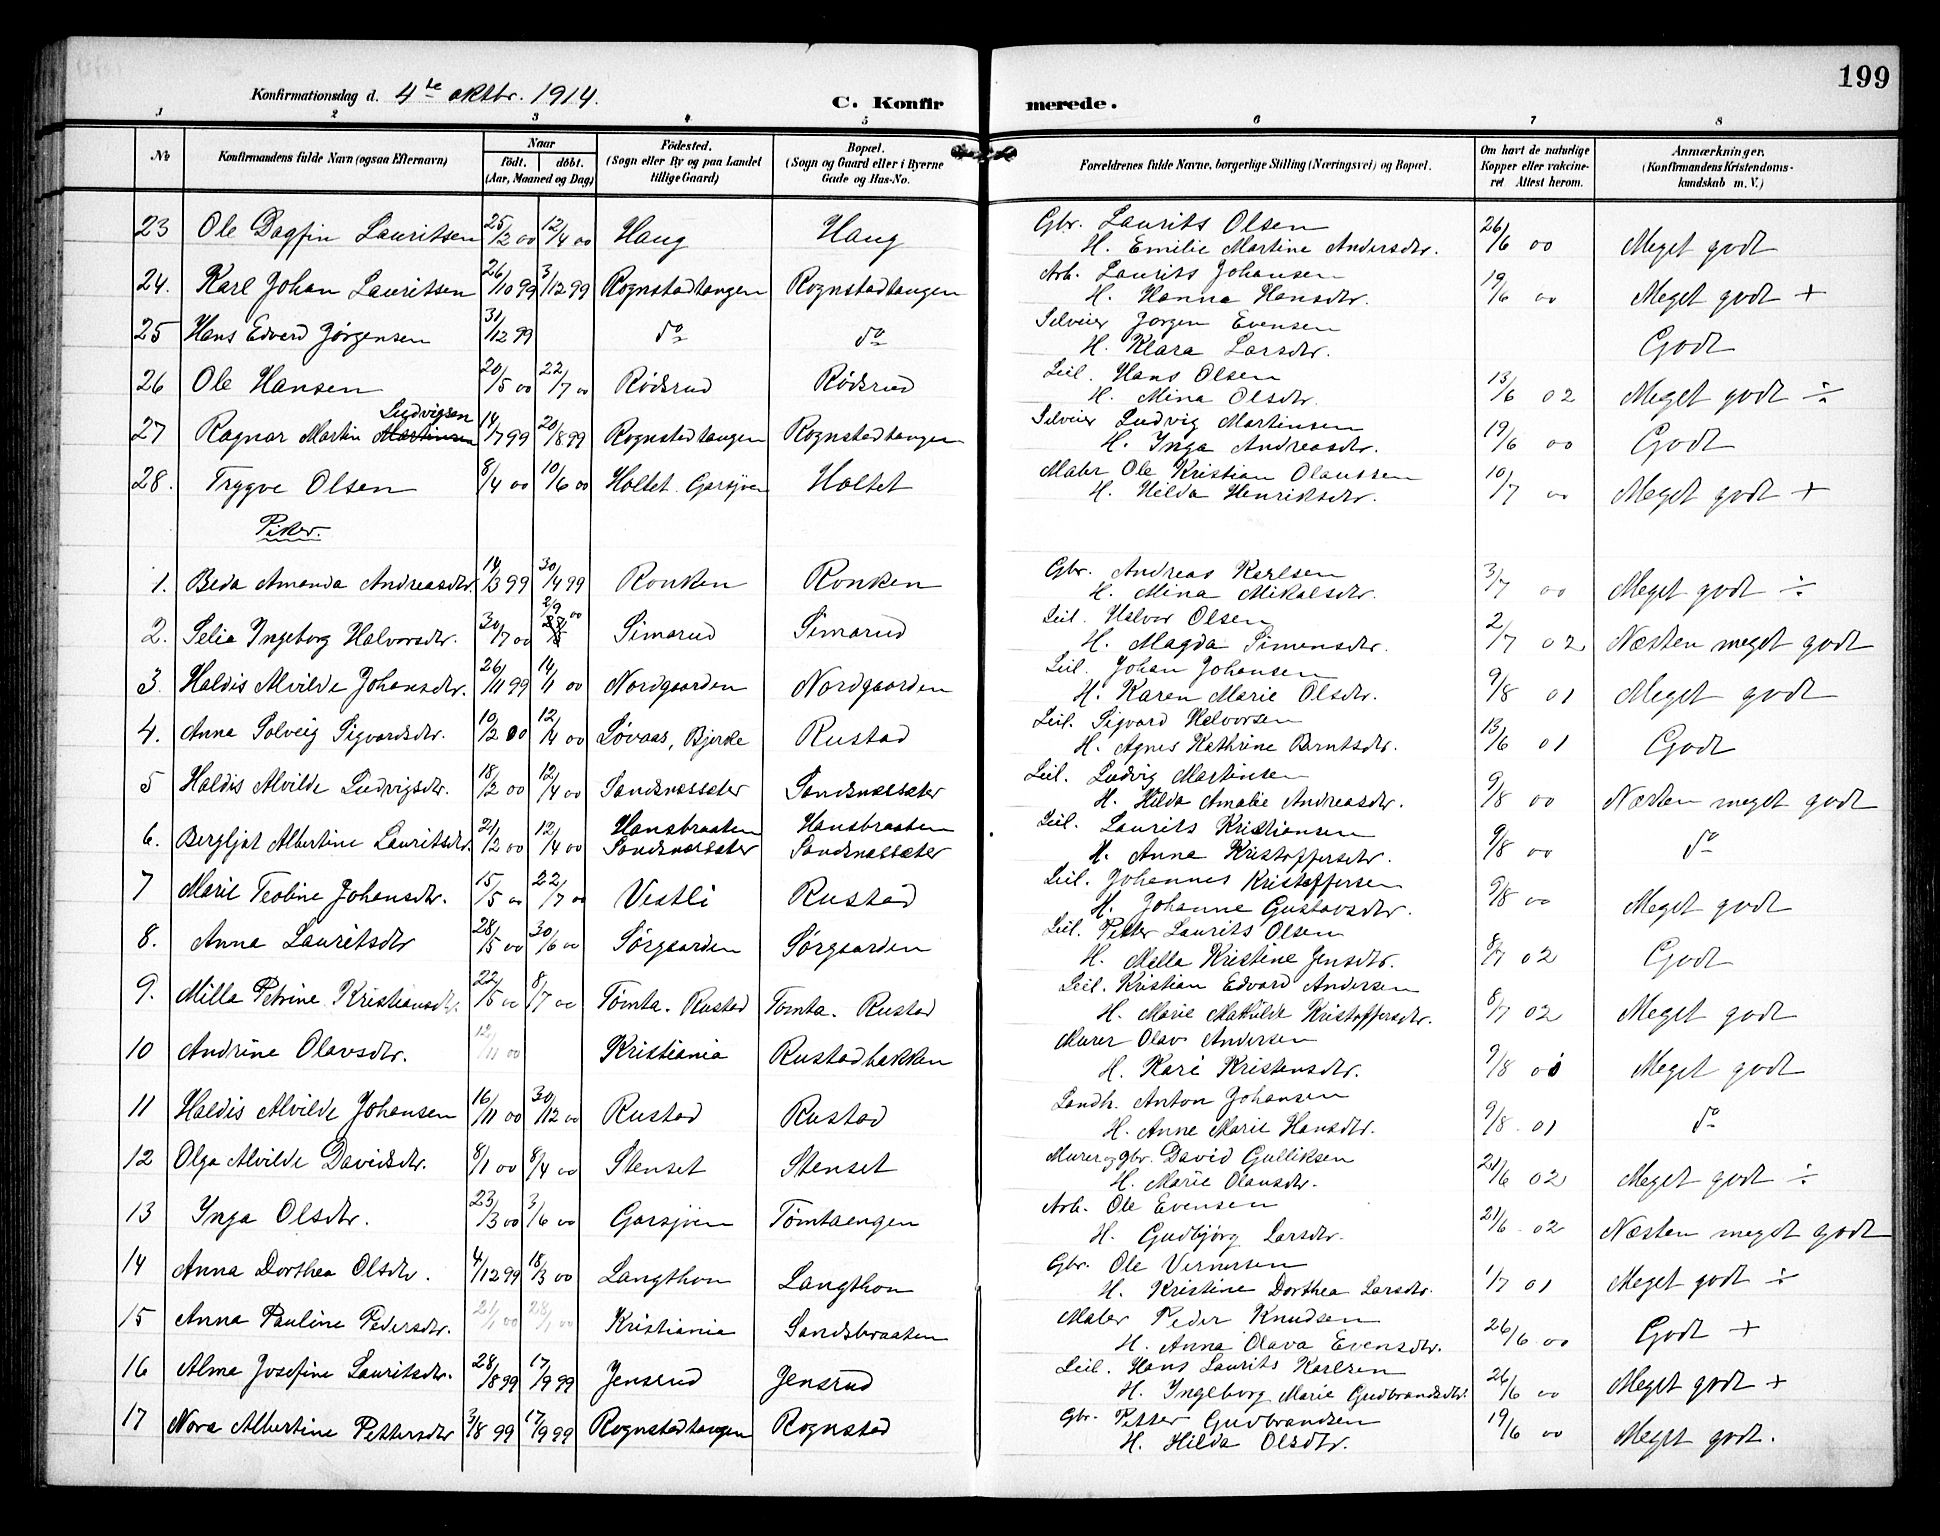 199
Konfirmationsdag d. 4de oktbr. 1914.
C. Konfirmerede.
1 2 3 4 5 6 7 8
No
Konfirmandens fulde Navn (ogsaa Efternavn)
Naar
födt. döbt.
(Aar, Maaned og Dag)
Födested.
(Sogn eller By og paa Landet
tillige Gaard)
Bopæl.
(Sogn og Gaard eller i Byerne
Gade og Hus-No.
Forældrenes fulde Navne, borgerlige Stilling (Næringsvei) og Bopæl.
Om havt de naturlige
Kopper eller vakcine-
ret Attest herom.
Anmærkninger.
(Konfirmandens Kristendoms-
kundskab m. V.)
23 Ole Dagfin Lauritsen 25/2 00 12/4 00 Haug Haug Gbr. Laurits Olsen
H. Emilie Martine Andersdtr. 26/6 00 Meget godt
24. Karl Johan Lauritsen 26/10 99 3/12 99 Rognstadtangen Rognstadtangen Arb. Laurits Johansen
H. Hanna Hansdtr. 19/6 00 Meget godt +
25 Hans Edvard Jørgensen 31/12 99 do do Selveier Jørgen Evensen
H. Klara Larsdtr. Godt
26 Ole Hansen 20/5 00 22/7 00 Rødsrud Rødsrud Leil. Hans Olsen
H. Mina Olsdtr. 13/6 02 Meget godt ÷
27 Ragnar Martin Martinsen Ludvigsen 14/7 99 20/8 99 Rognstadtangen Rognstadtangen Selveier Ludvig Martinsen
H. Inga Andreasdtr. 19/6 00 Godt
28. Trygve Olsen 8/4 00 10/6 00 Holtet Garsjøen Holtet Maler Ole Kristian Olaussen
H. Hilda Henriksdtr. 10/7 00 Meget godt +
Piker.
1. Beda Amanda Andreasdtr. 14/3 99 30/4 99 Ronken Ronken Gbr. Andreas Karlsen
H. Mina Mikalsdtr. 3/7 00 Meget godt ÷
2. Selia Ingeborg Halvorsdtr. 30/7 00 2/9 00 Simarud Simarud Leil. Halvor Olsen
H. Magda Simensdtr. 2/7 02 Næsten meget godt
3. Haldis Alvilde Johansdtr. 26/11 99 14/1 00 Nordgaarden Nordgaarden Leil. Johan Johansen
H. Karen Marie Olsdtr. 9/8 01 Meget godt
4. Anna Solveig Sigvardsdtr. 10/2 00 12/4 00 Løvaas, Bjerke Rustad Leil. Sigvard Halvorsen
H. Agnes Kathrine Berntsdtr. 13/6 01 Godt
5 Haldis Alvilde Ludvigsdtr. 18/2 00 12/4 00 Sandsnessæter Sandsnessæter Leil. Ludvig Martinsen
H. Hilda Amalie Andreasdtr. 9/8 00 Næsten meget godt
6. Bergljot Albertine Lauritsdtr. 21/2 00 12/4 00 Hansbraaten Sandsnessæter Hansbraaten Sandsnessæter Leil. Laurits Kristiansen
H. Anna Kristoffersdtr. 9/8 00 do
7 Marie Teoline Johansdtr. 15/5 00 22/7 00 Vestli Rustad Leil. Johannes Kristoffersen
H. Johanne Gustavsdtr. 9/8 00 Meget godt
8. Anna Lauritsdtr 28/5 00 30/6 00 Sørgaarden Sørgaarden Leil. Petter Laurits Olsen
H. Mella Kristine Jensdtr. 8/7 02 Godt
9. Milla Petrine Kristiansdtr. 22/5 00 8/7 00 Tømta. Rustad Tomta. Rustad Leil. Kristian Edvard Andersen
H. Marie Mathilde Kristoffersdtr. 8/7 02 Meget godt
10 Andrine Olavsdtr. 12/11 00 Kristiania Rustadbakken Murer Olav Andersen
H. Kari Kristensdtr. 9/8 01 Meget godt
11 Haldis Alvilde Johansen 16/11 00 30/12 00 Rustad Rustad Landh. Anton Johansen
H. Anne Marie Hansdtr. 9/8 01 do
12 Olga Alvilde Davidsdtr. 8/1 00 8/4 00 Stenset Stenset Murer og gbr. David Gulliksen
H. Marie Olausdtr. 21/6 02 Meget godt ÷
13 Inga Olsdtr. 23/3 00 3/6 00 Garsjøen Tømtaengen Arb. Ole Evensen
H. Gudbjørg Larsdtr. 21/6 02 Næsten meget godt
14 Anna Dorthea Olsdtr. 4/12 99 18/3 00 Langthon Langthon Gbr. Ole Vernersen
H. Kristine Dorthea Larsdtr. 1/7 01 Meget godt ÷
15 Anna Pauline Pedersdtr. 21/1 00 28/1 00 Kristiania Sandsbraaten Maler Peder Knudsen
H. Anna Olava Evensdtr. 26/6 00 Godt +
16 Alma Josefine Lauritsdtr. 28/8 99 17/9 99 Jensrud Jensrud Leil. Hans Laurits Karlsen
H. Ingeborg Marie Gudbrandsdtr. 26/6 00 Meget godt +
17 Nora Albertine Pettersdtr 3/8 99 17/9 99 Rognstadtangen Rognstad Gbr. Petter Gudbrandsen
H. Hilda Olsdtr. 19/6 00 Meget godt.